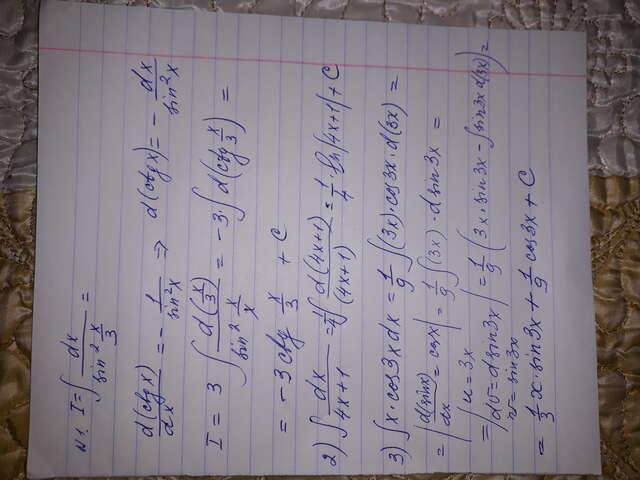 N1. I = ∫ dx / sin² x/3 =
d(ctg x)/dx = - 1/sin²x ⇒ d(ctg x) = - dx/sin²x
I = 3 ∫ d(x/3) / sin² x/x = -3·∫ d(ctg x/3) =
= -3 ctg x/3 + C
2) ∫ dx/4x+1 = 1/4 ∫ d(4x+1)/(4x+1) = 1/4 · ln|4x+1| + C
3) ∫ x·cos3x dx = 1/9 ∫(3x)·cos3x·d(3x) =
= | d(sinx)/dx = cosx | = 1/9 ∫(3x)·d sin3x =
= | u = 3x dv = d sin3x v = sin3x | = 1/9 (3x·sin3x - ∫sin3x d(3x)) =
= 1/3 x·sin3x + 1/9 cos3x + C